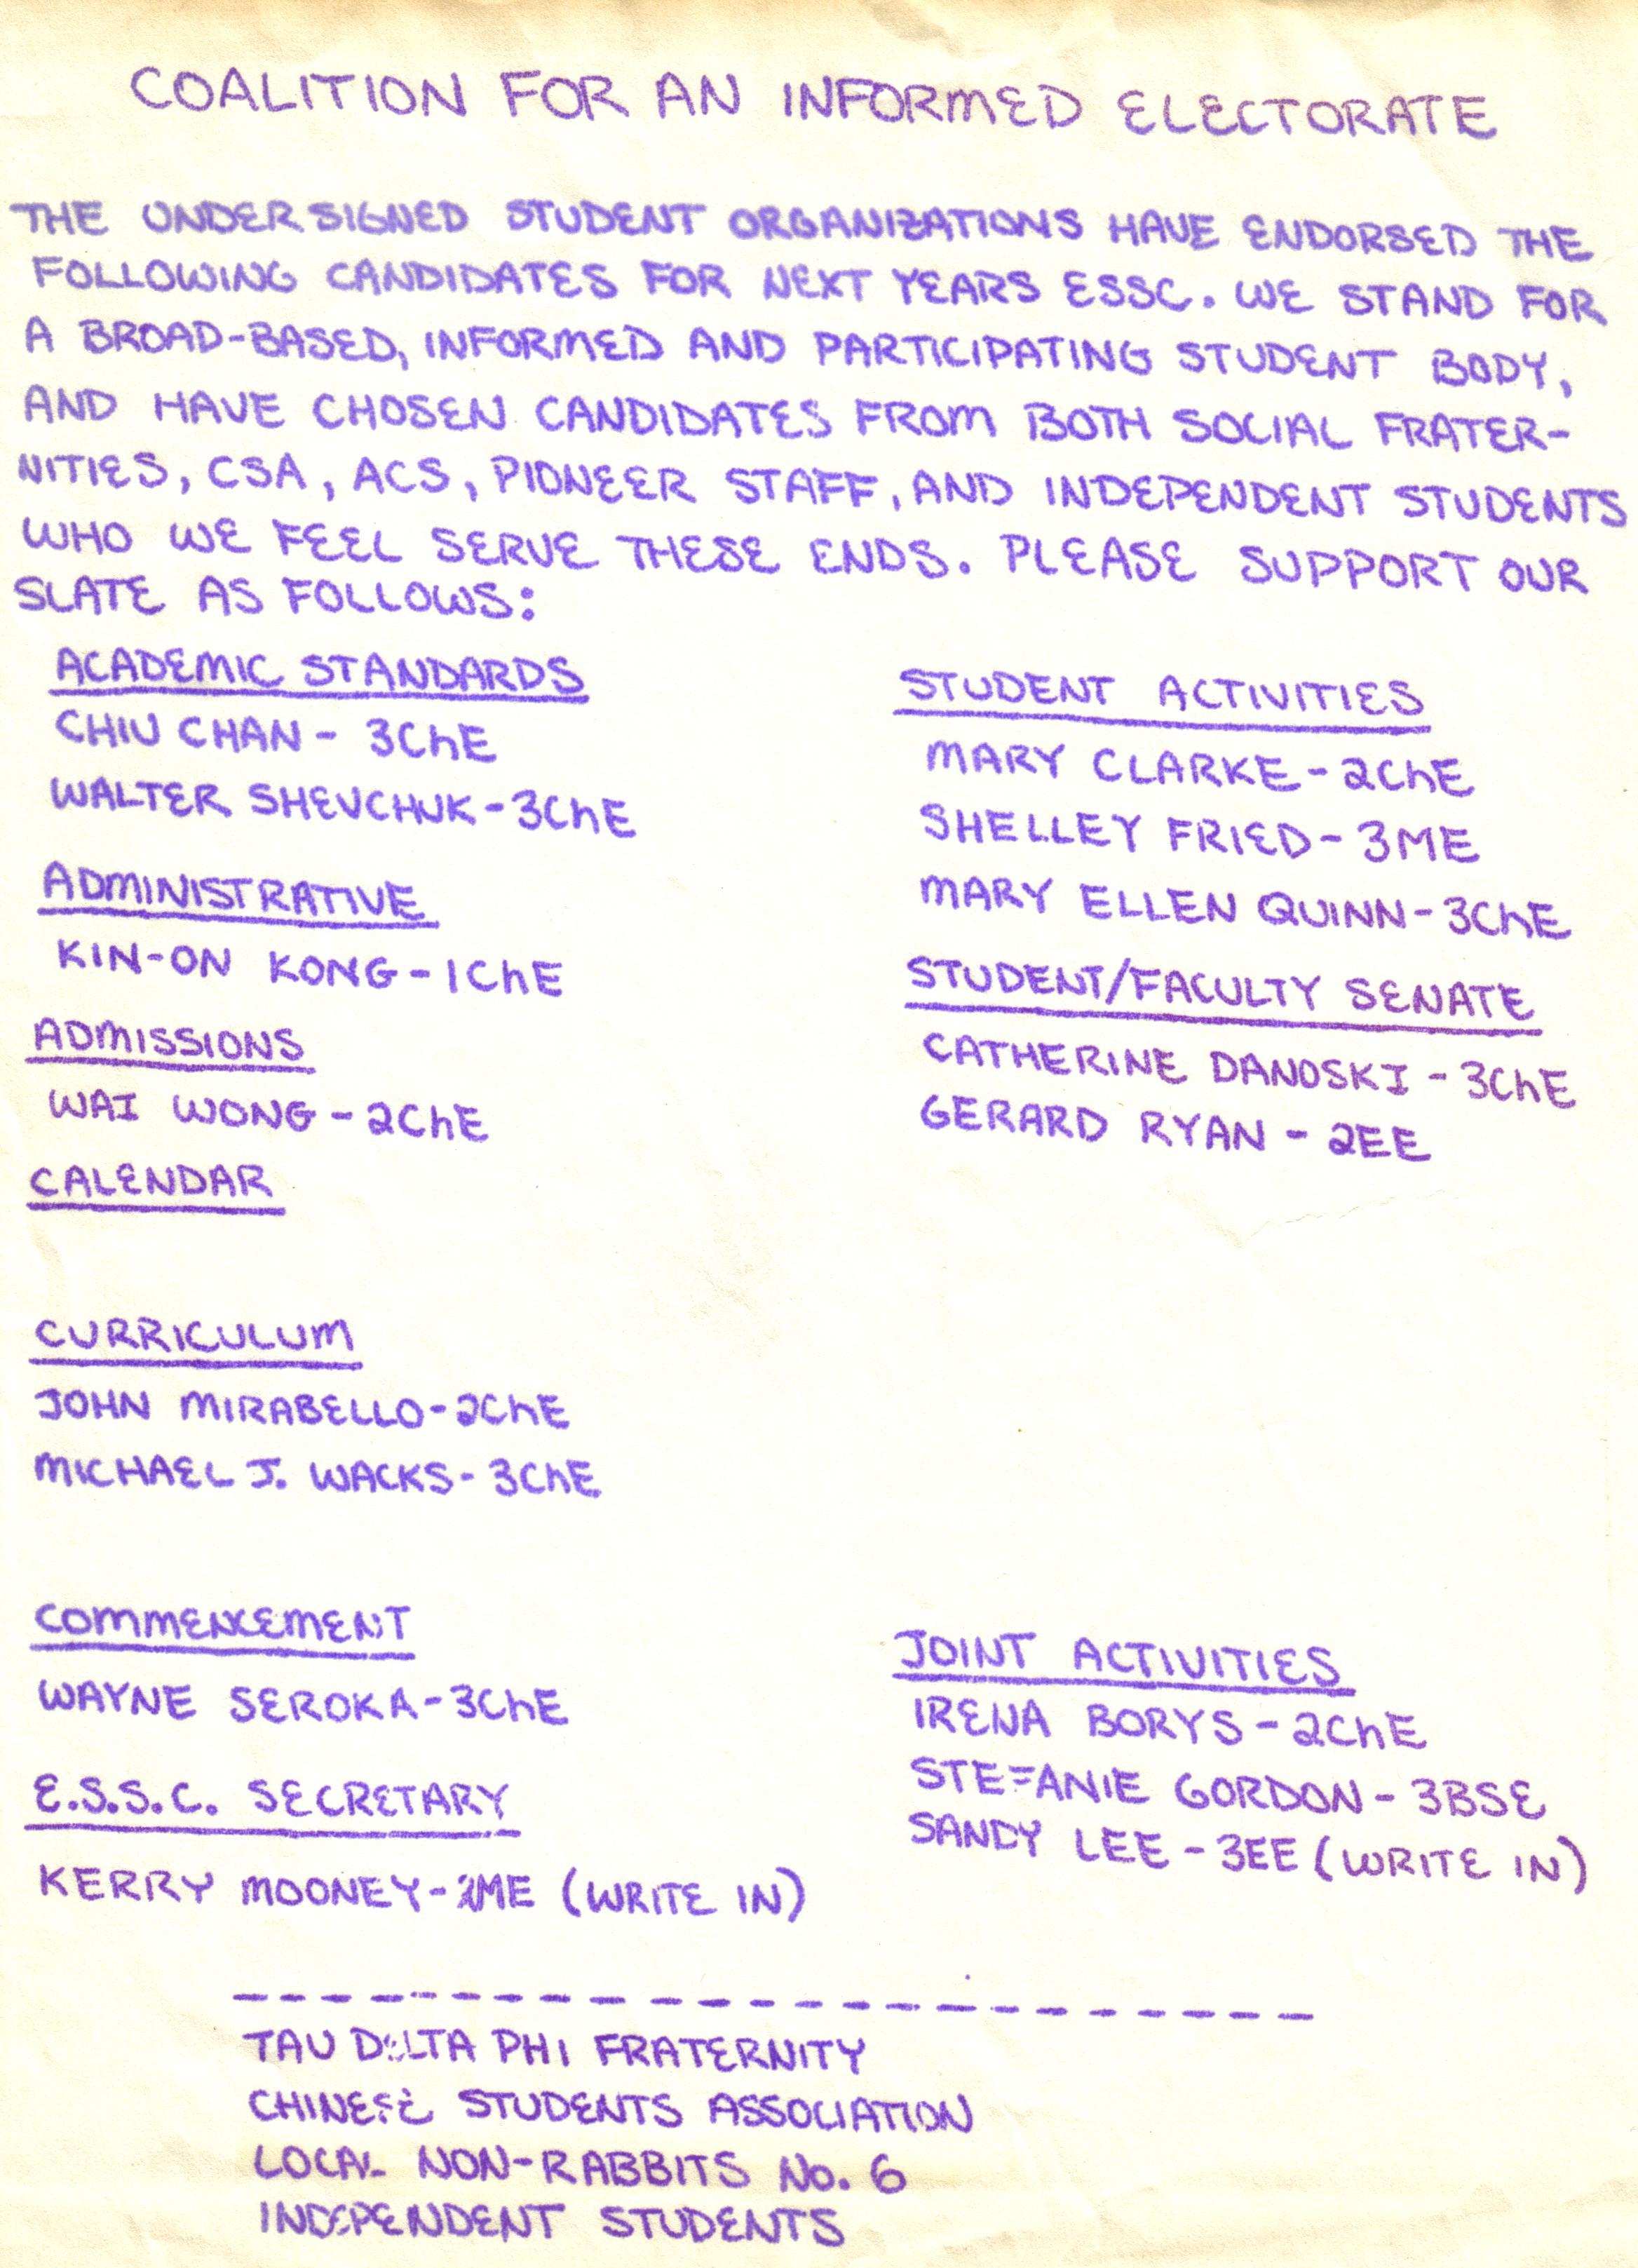 COALITION FOR AN INFORMED ELECTORATE
THE UNDERSIGNED STUDENT ORGANIZATIONS HAVE ENDORSED THE
FOLLOWING CANDIDATES FOR NEXT YEARS ESSC. WE STAND FOR
A BROAD-BASED, INFORMED AND PARTICIPATING STUDENT BODY,
AND HAVE CHOSEN CANDIDATES FROM BOTH SOCIAL FRATER-
NITIES, CSA, ACS, PIONEER STAFF, AND INDEPENDENT STUDENTS
WHO WE FEEL SERVE THESE ENDS. PLEASE SUPPORT OUR
SLATE AS FOLLOWS:
ACADEMIC STANDARDS
CHIU CHAN - 3ChE
WALTER SHEVCHUK - 3ChE
ADMINISTRATIVE
KIN-ON KONG - 1ChE
ADMISSIONS
WAI WONG - 2ChE
CALENDAR
CURRICULUM
JOHN MIRABELLO - 2ChE
MICHAEL J. WACKS - 3ChE
COMMENCEMENT
WAYNE SEROKA - 3ChE
E.S.S.C. SECRETARY
KERRY MOONEY - 2ME (WRITE IN)
STUDENT ACTIVITIES
MARY CLARKE - 2ChE
SHELLEY FRIED - 3ME
MARY ELLEN QUINN - 3ChE
STUDENT/FACULTY SENATE
CATHERINE DANOSKI - 3ChE
GERARD RYAN - 2EE
JOINT ACTIVITIES
IRENA BORYS - 2ChE
STEFANIE GORDON - 3BSE
SANDY LEE - 3EE (WRITE IN)
TAU DELTA PHI FRATERNITY
CHINESE STUDENTS ASSOCIATION
LOCAL NON-RABBITS No. 6
INDEPENDENT STUDENTS